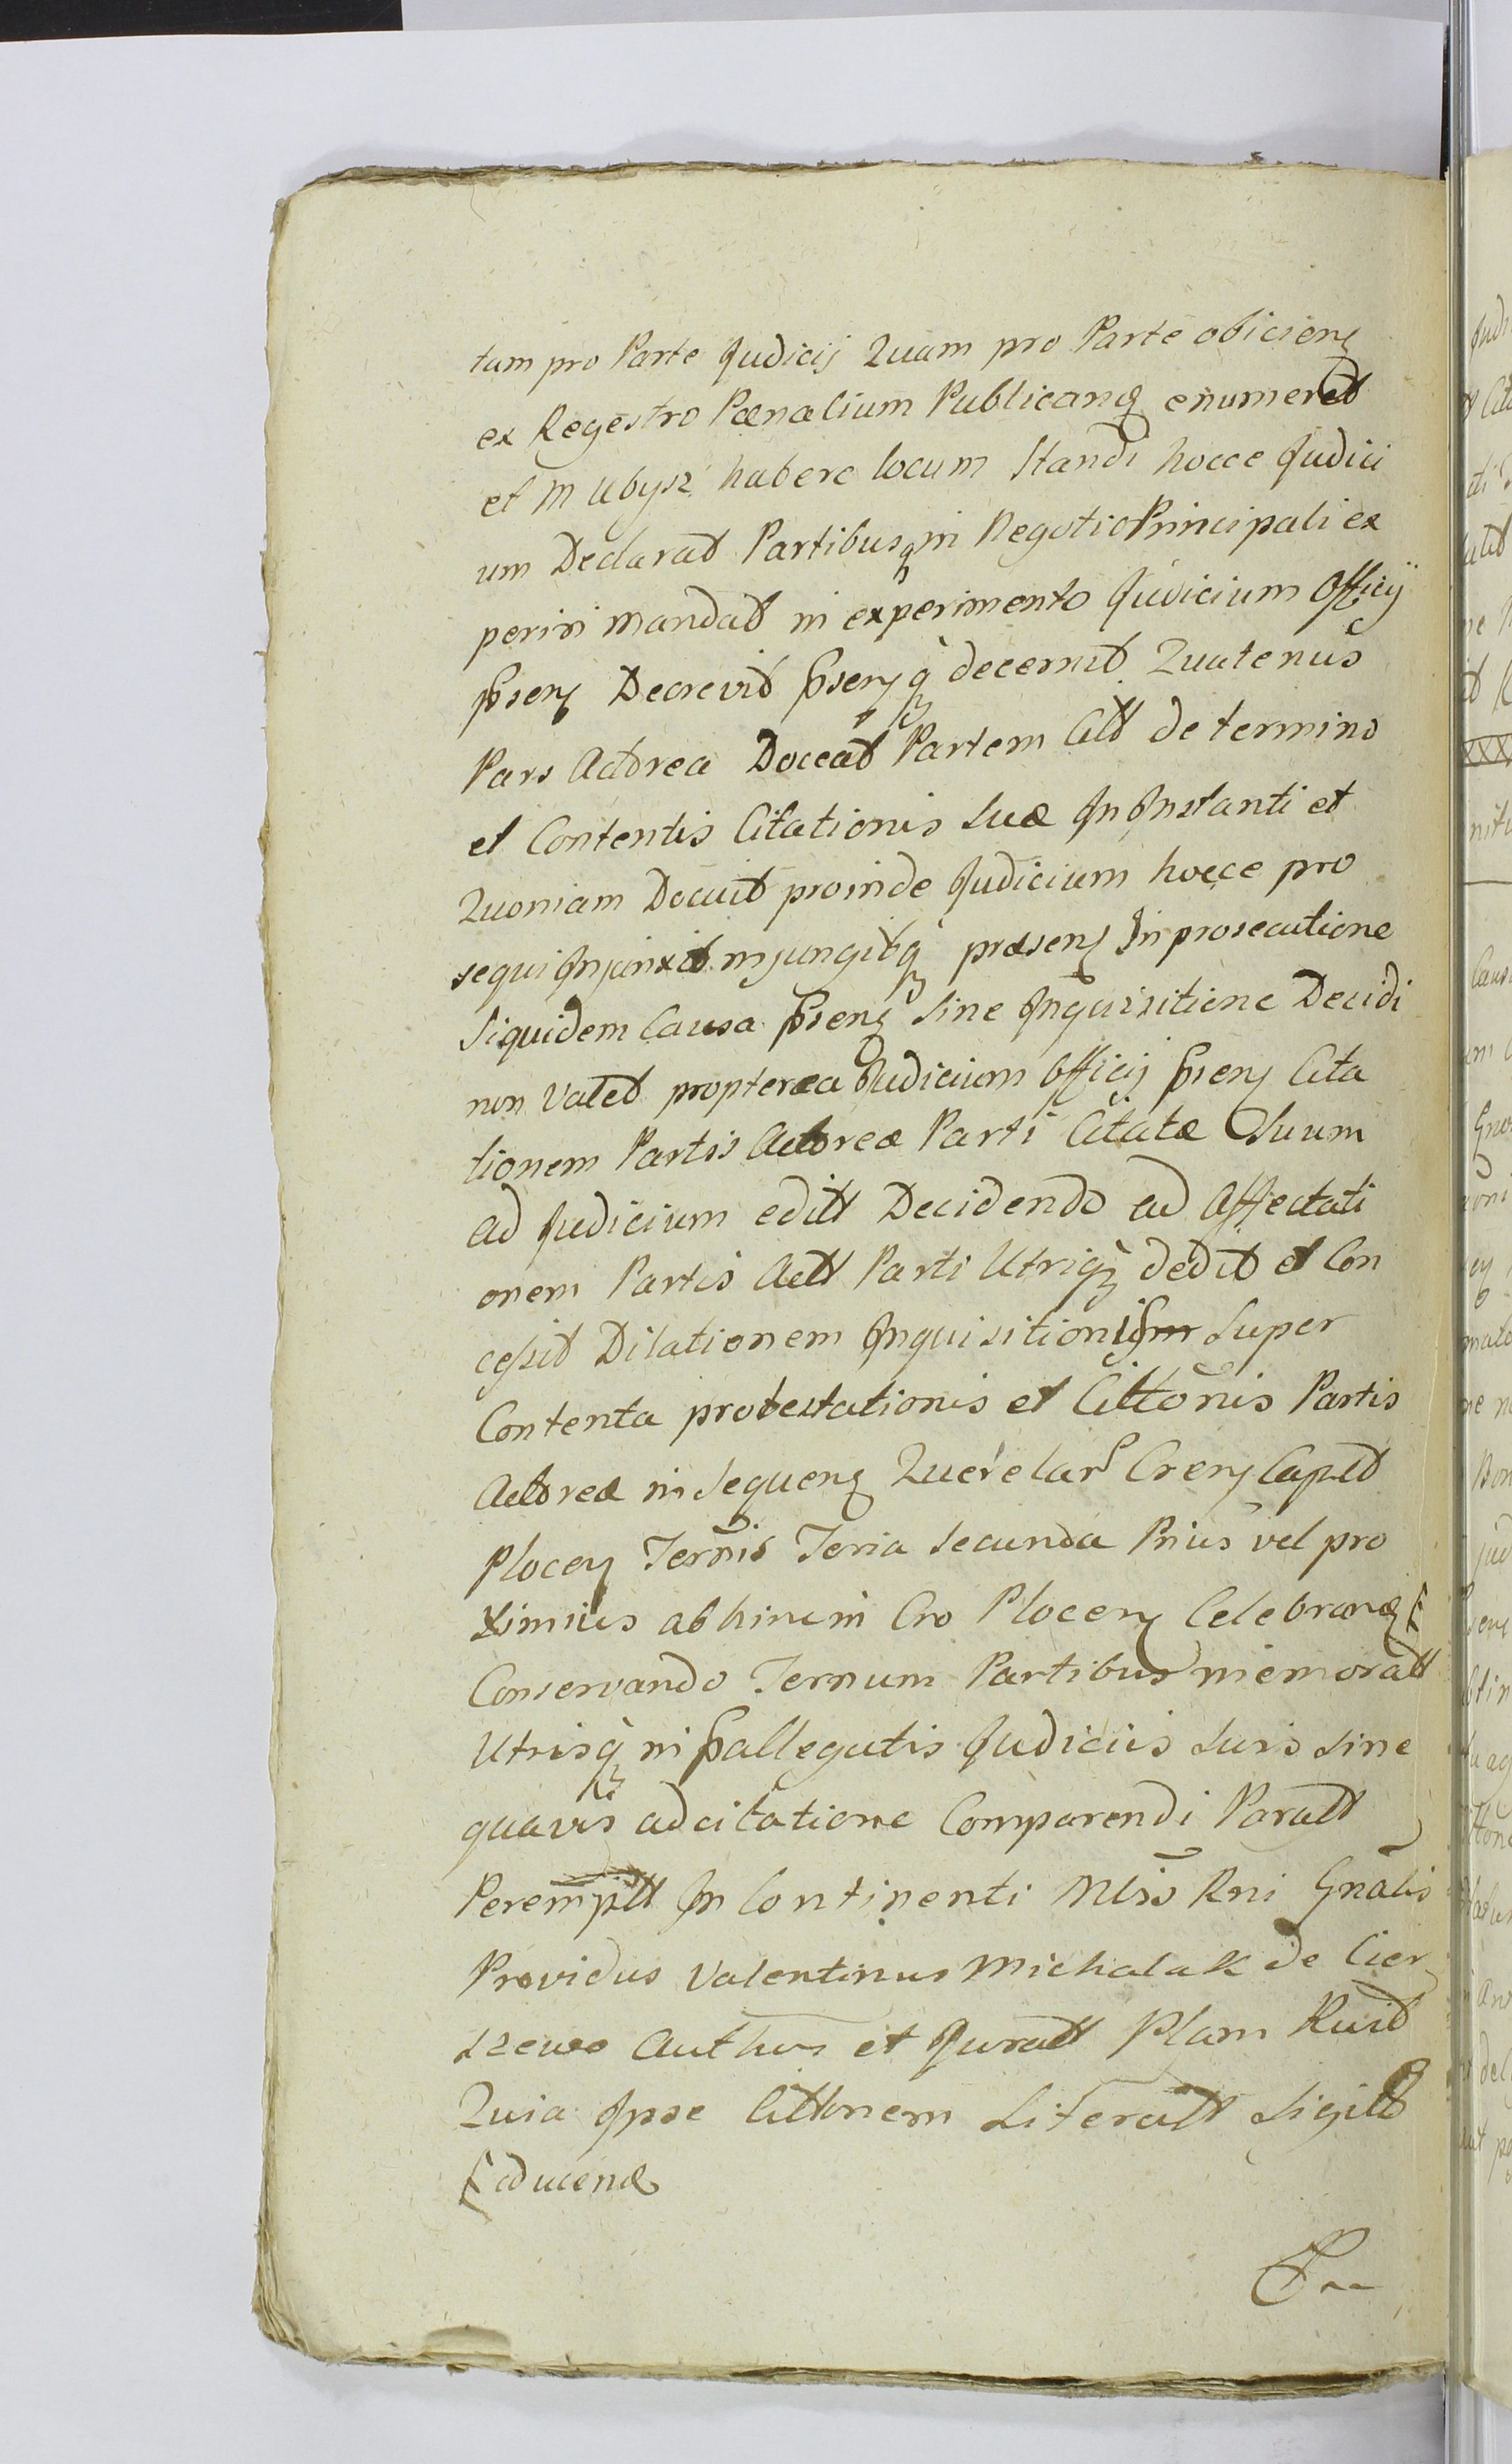 tam pro Parte Judicij Quam pro Parte obicienꝫ
ex Regestro Pœnalium Publicanꝫ enumeret
et m Ubysz habere locum Standi hocce Judici
um Declarat Partibusq in Negotio Principali ex
periri mandat in experimento Judicium Officij
psenꝫ Decrevit psenꝫq decernit Quatenus
Pars Actorea Doceat Partem Citt de termino
et Contentis Citationis suæ In Instanti et
Quoniam Docuit proinde Judicium hocce pro
sequi Injunxit injungitq præsenꝫ In prosecutione
Siquidem Causa psenꝫ sine Inquisitione Decidi
non valet propterea Judicium Officij psenꝫ Cita
tionem Partis Actoreæ Parti Citatæ Suum
ad Judicium editt Decidendo ad Affectati
onem Partis Actt Parti Utriq dedit et Con
cessit Dilationem Inquisitionis super
Contenta protestationis et Cittonis Partis
Actoreæ in sequenꝫ Querelar Crenꝫ Capit
Plocenꝫ Ternis Feria secunda Prius vel pro
ximius abhinc in Cro Plocenꝫ Celebranꝫ E
Conservando Ternum Partibus memoratt
Utrisq in pallegatis Judiciis suis sine
quavis adcitatione Comparendi Paratt
Perempitt In Continenti Mtis Rni Gnalis
Providus Valentinus Michalak de Cier
szewo Authus et Juratt Plam Ruit
Quia Ipse Cittonem Literatt Sigitt
Educenꝫ